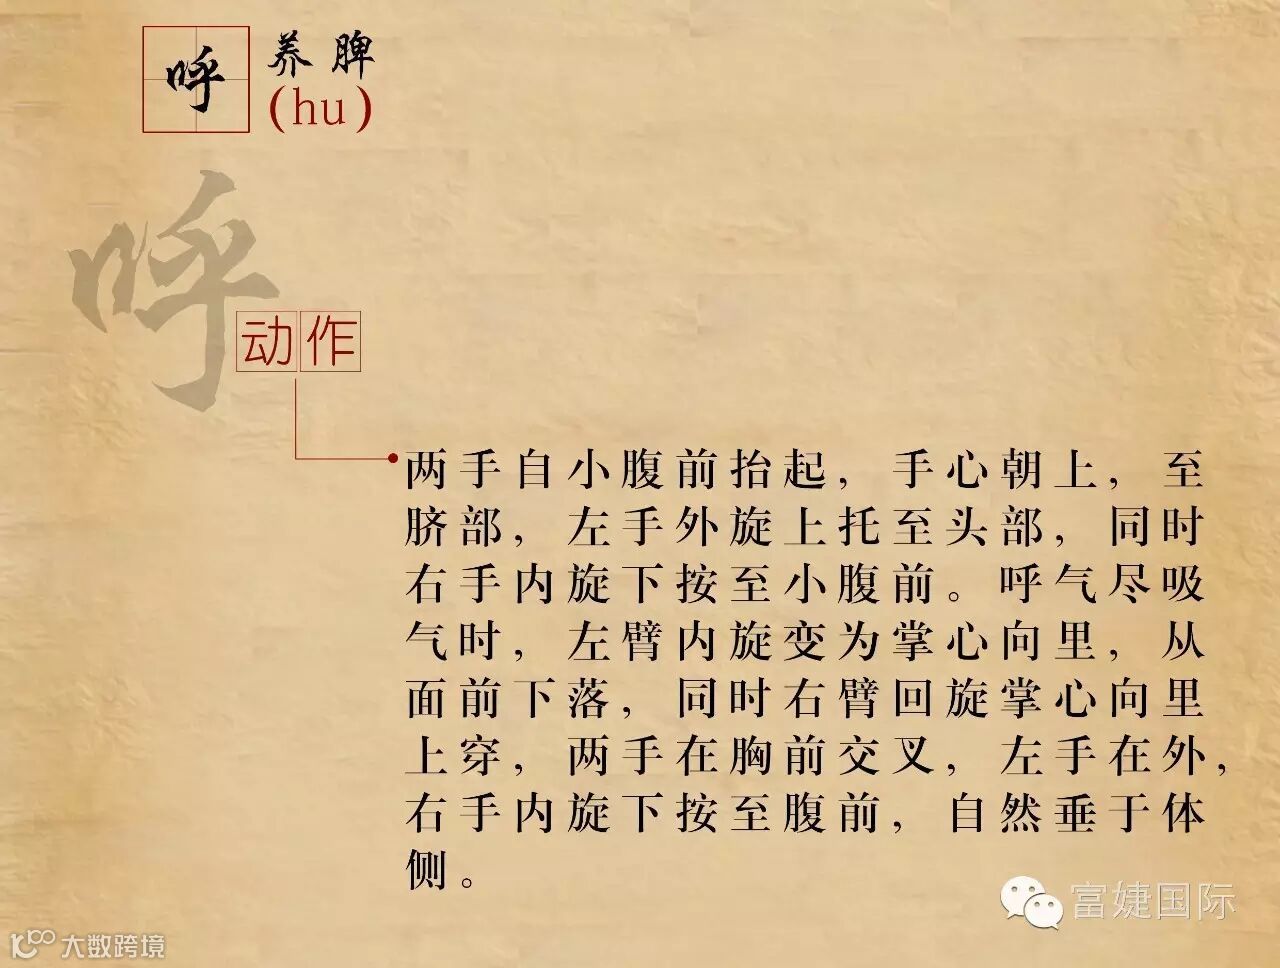 呼
养脾
(hu)
呼
动作
两手自小腹前抬起，手心朝上，至
脐部，左手外旋上托至头部，同时
右手内旋下按至小腹前。呼气尽吸
气时，左臂内旋变为掌心向里，从
面前下落，同时右臂回旋掌心向里
上穿，两手在胸前交叉，左手在外，
右手内旋下按至腹前，自然垂于体
侧。
富婕国际
大数跨境